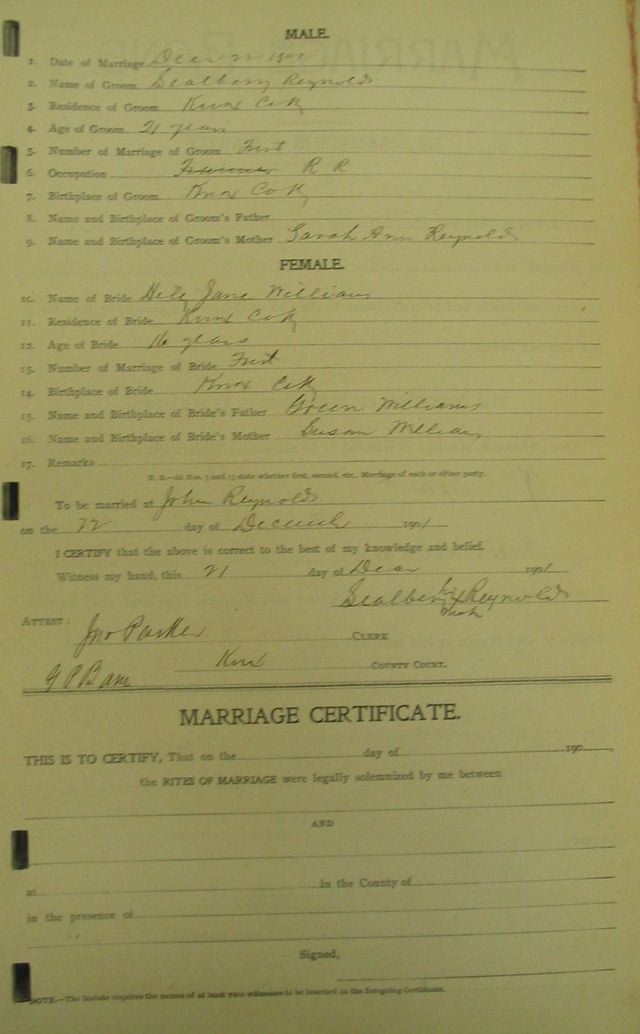 MALE.
1. Date of Marriage Decr 22 1901
2. Name of Groom Sealberry Reynolds
3. Residence of Groom Knox Co Ky
4. Age of Groom 21 years
5. Number of Marriage of Groom First
6. Occupation Farmer R R
7. Birthplace of Groom Knox Co Ky
8. Name and Birthplace of Groom's Father
9. Name and Birthplace of Groom's Mother Sarah Ann Reynolds
FEMALE.
10. Name of Bride Jane Williams
11. Residence of Bride Knox Co Ky
12. Age of Bride 16 years
13. Number of Marriage of Bride First
14. Birthplace of Bride Knox Co Ky
15. Name and Birthplace of Bride's Father Green Williams
16. Name and Birthplace of Bride's Mother Susan Williams
17. Remarks
N. B.—At Nos. 5 and 13 state whether first, second, etc., Marriage of each or either party.
To be married at John Reynolds
on the 22 day of Decemb 1901
I CERTIFY that the above is correct to the best of my knowledge and belief.
Witness my hand, this 21 day of Decr 1901
Sealberry his x mark Reynolds
ATTEST:
Jno Parker CLERK
G P Bain Knox COUNTY COURT.
MARRIAGE CERTIFICATE.
THIS IS TO CERTIFY, That on the day of 190 ,
the RITES OF MARRIAGE were legally solemnized by me between
AND
at in the County of
in the presence of
Signed,
NOTE.—The Statute requires the names of at least two witnesses to be inserted in the foregoing Certificate.